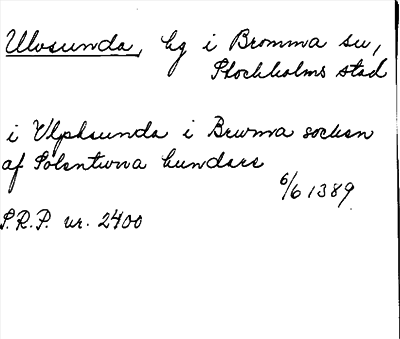 Ulvsunda, hg i Bromma sn,
Stockholms stad
i Vlphsunda i Bruma sochen
af Solentuna hundare
6/6 1389
S.R.P. nr. 2400